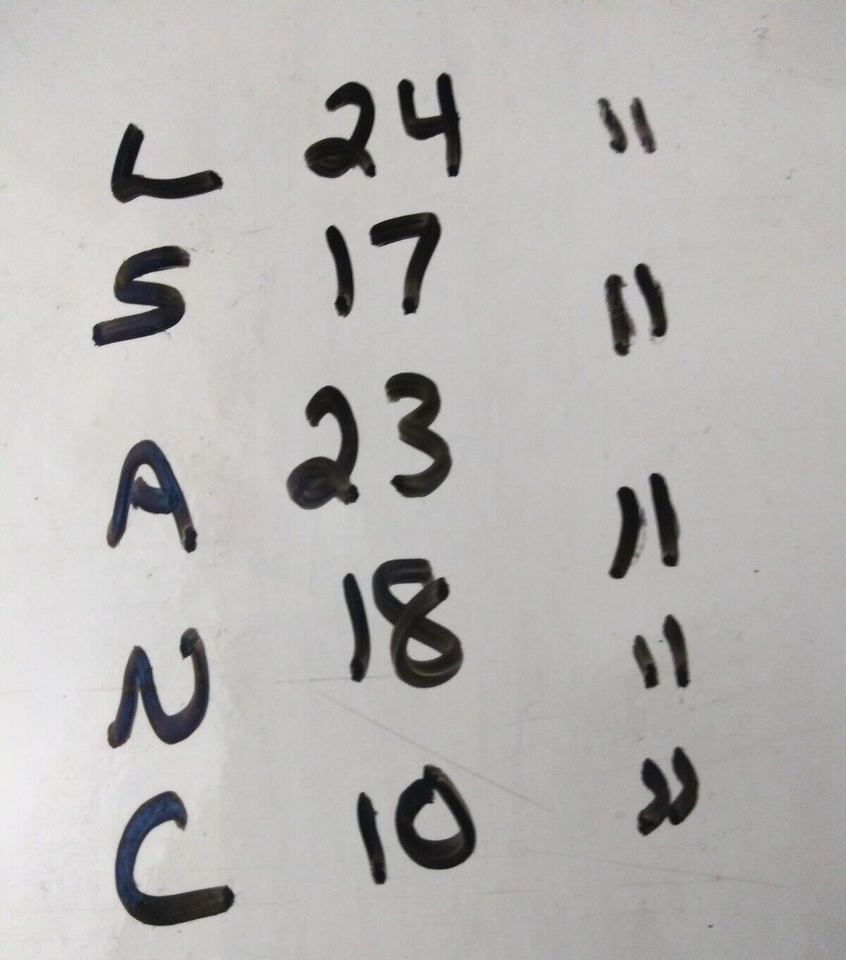 L 24 "
S 17 "
A 23 "
N 18 "
C 10 "